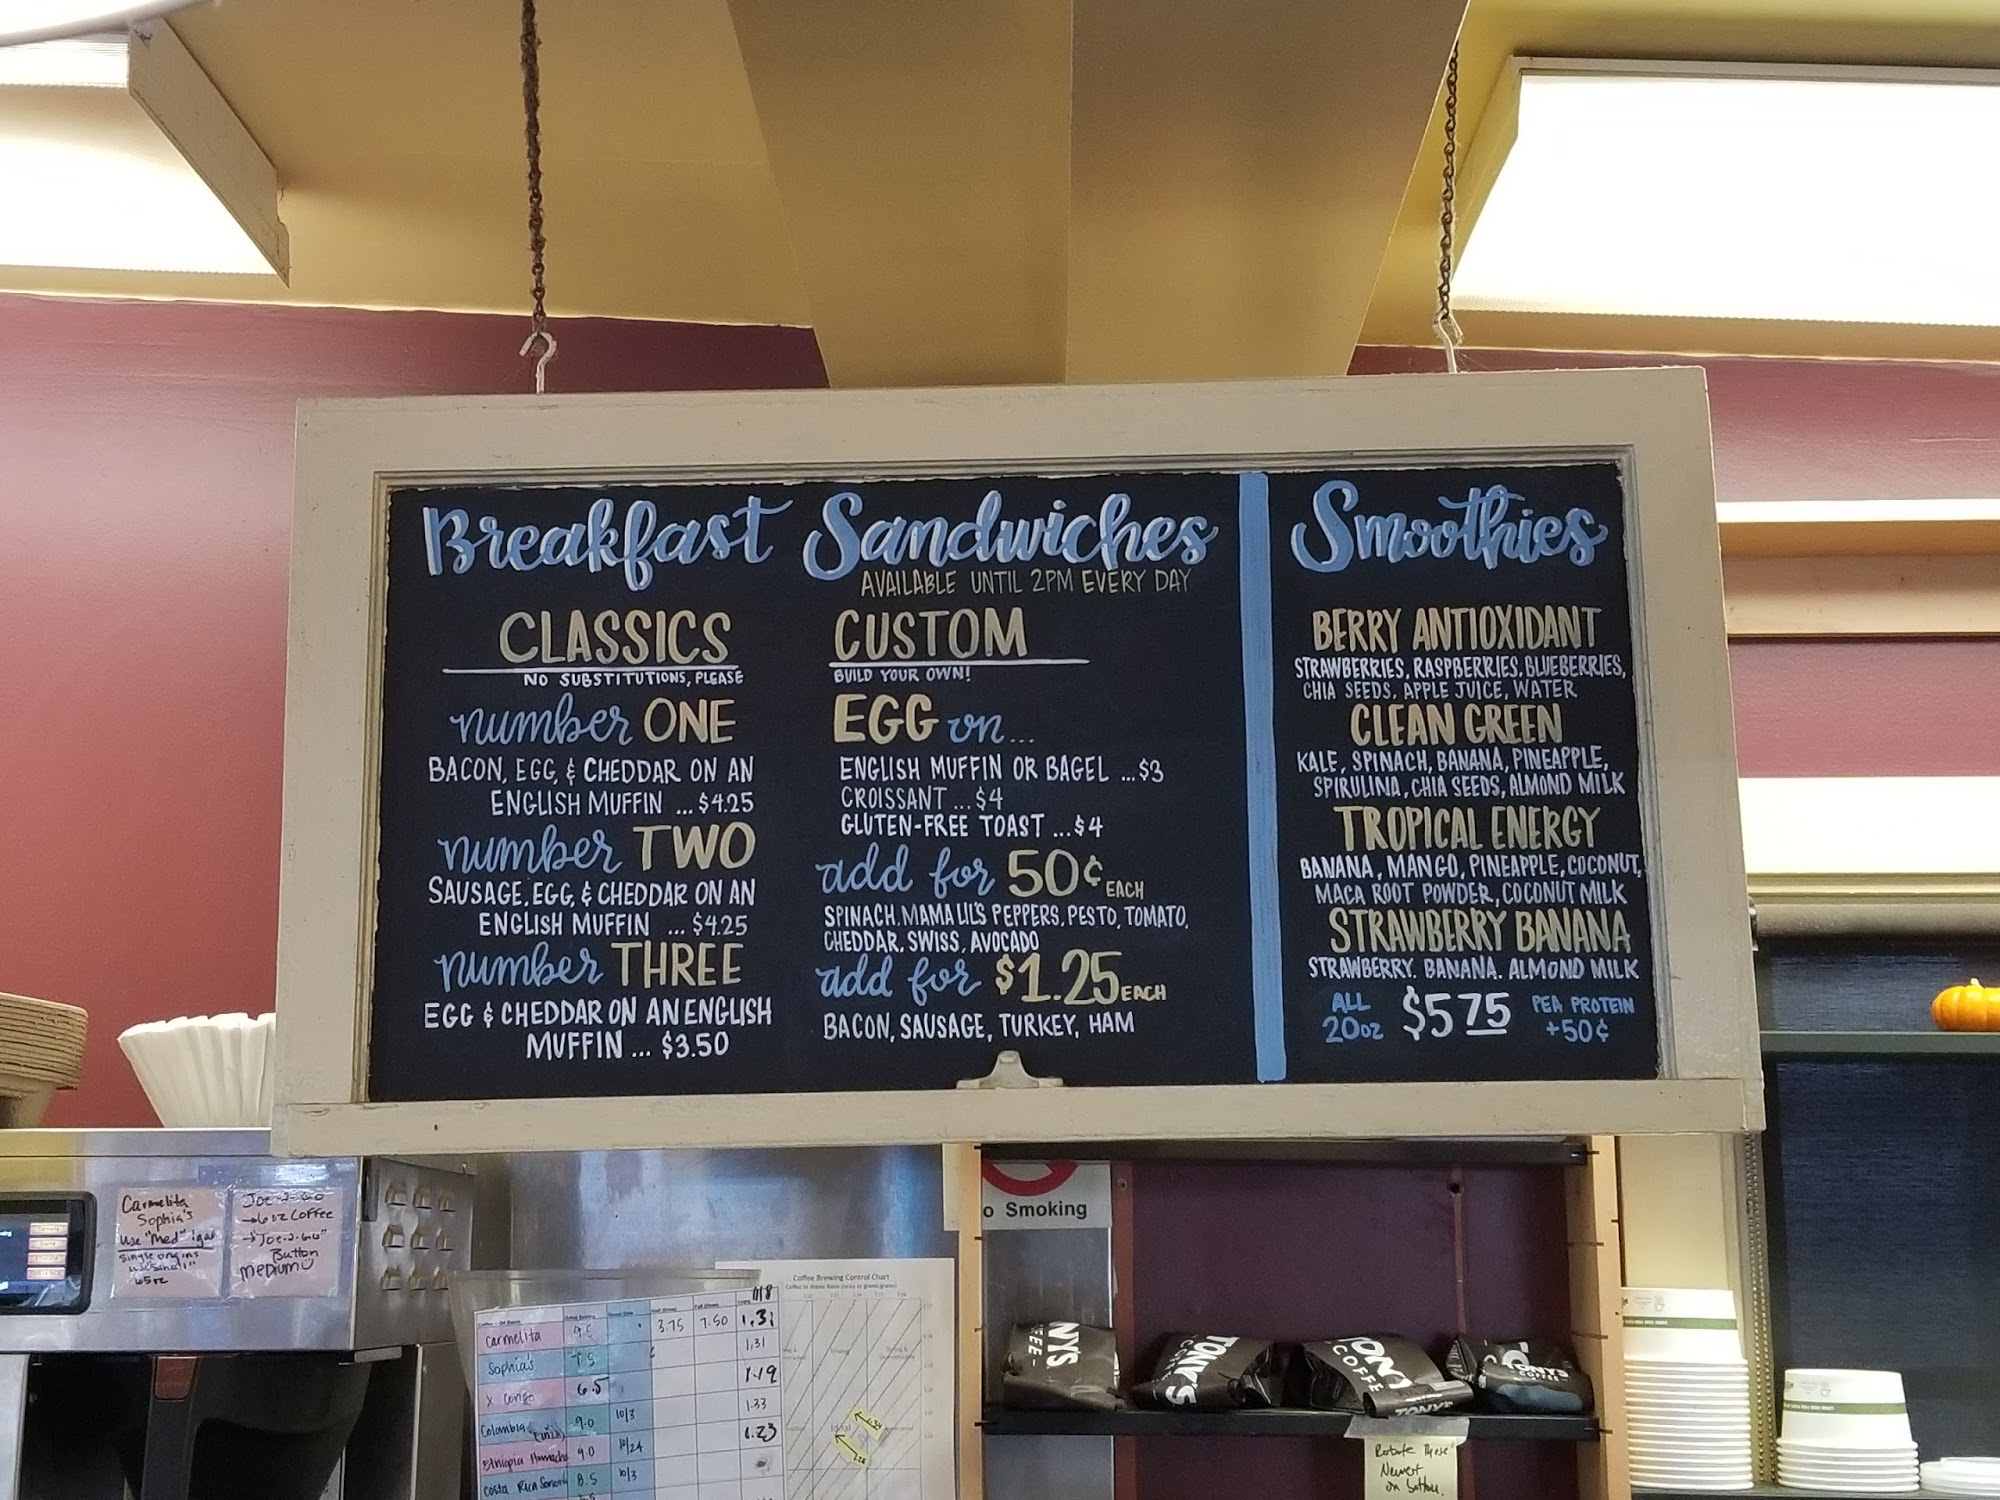 Breakfast Sandwiches
AVAILABLE UNTIL 2PM EVERY DAY
CLASSICS
NO SUBSTITUTIONS, PLEASE
number ONE
BACON, EGG, & CHEDDAR ON AN
ENGLISH MUFFIN ... $4.25
number TWO
SAUSAGE, EGG, & CHEDDAR ON AN
ENGLISH MUFFIN ... $4.25
number THREE
EGG & CHEDDAR ON AN ENGLISH
MUFFIN ... $3.50
CUSTOM
BUILD YOUR OWN!
EGG on...
ENGLISH MUFFIN OR BAGEL ...$3
CROISSANT ...$4
GLUTEN-FREE TOAST ...$4
add for 50¢ EACH
SPINACH, MAMA LIL'S PEPPERS, PESTO, TOMATO,
CHEDDAR, SWISS, AVOCADO
add for $1.25 EACH
BACON, SAUSAGE, TURKEY, HAM
Smoothies
BERRY ANTIOXIDANT
STRAWBERRIES, RASPBERRIES, BLUEBERRIES,
CHIA SEEDS, APPLE JUICE, WATER
CLEAN GREEN
KALE, SPINACH, BANANA, PINEAPPLE,
SPIRULINA, CHIA SEEDS, ALMOND MILK
TROPICAL ENERGY
BANANA, MANGO, PINEAPPLE, COCONUT,
MACA ROOT POWDER, COCONUT MILK
STRAWBERRY BANANA
STRAWBERRY, BANANA, ALMOND MILK
ALL 20oz $5.75 PEA PROTEIN +50¢
Carmelita
Sophia's
Use "Med"
single origins
Joe-2-Go
→ 6oz Coffee
→ "Joe-2-Go"
Button
medium
o Smoking
Coffee Brewing Control Chart
11/8
Carmelita 3.75 7.50 1.31
Sophia's 7.5 1.31
X Congo 6.5 1.19
Colombia 9.0 10/3 1.33
Ethiopia 9.0 10/24 1.23
Costa Rica 8.5 10/3
NY'S
TONY'S
TONY
COFFEE
TONY'S
TONYS
COFFEE
Rotate These
Newest
on bottom.